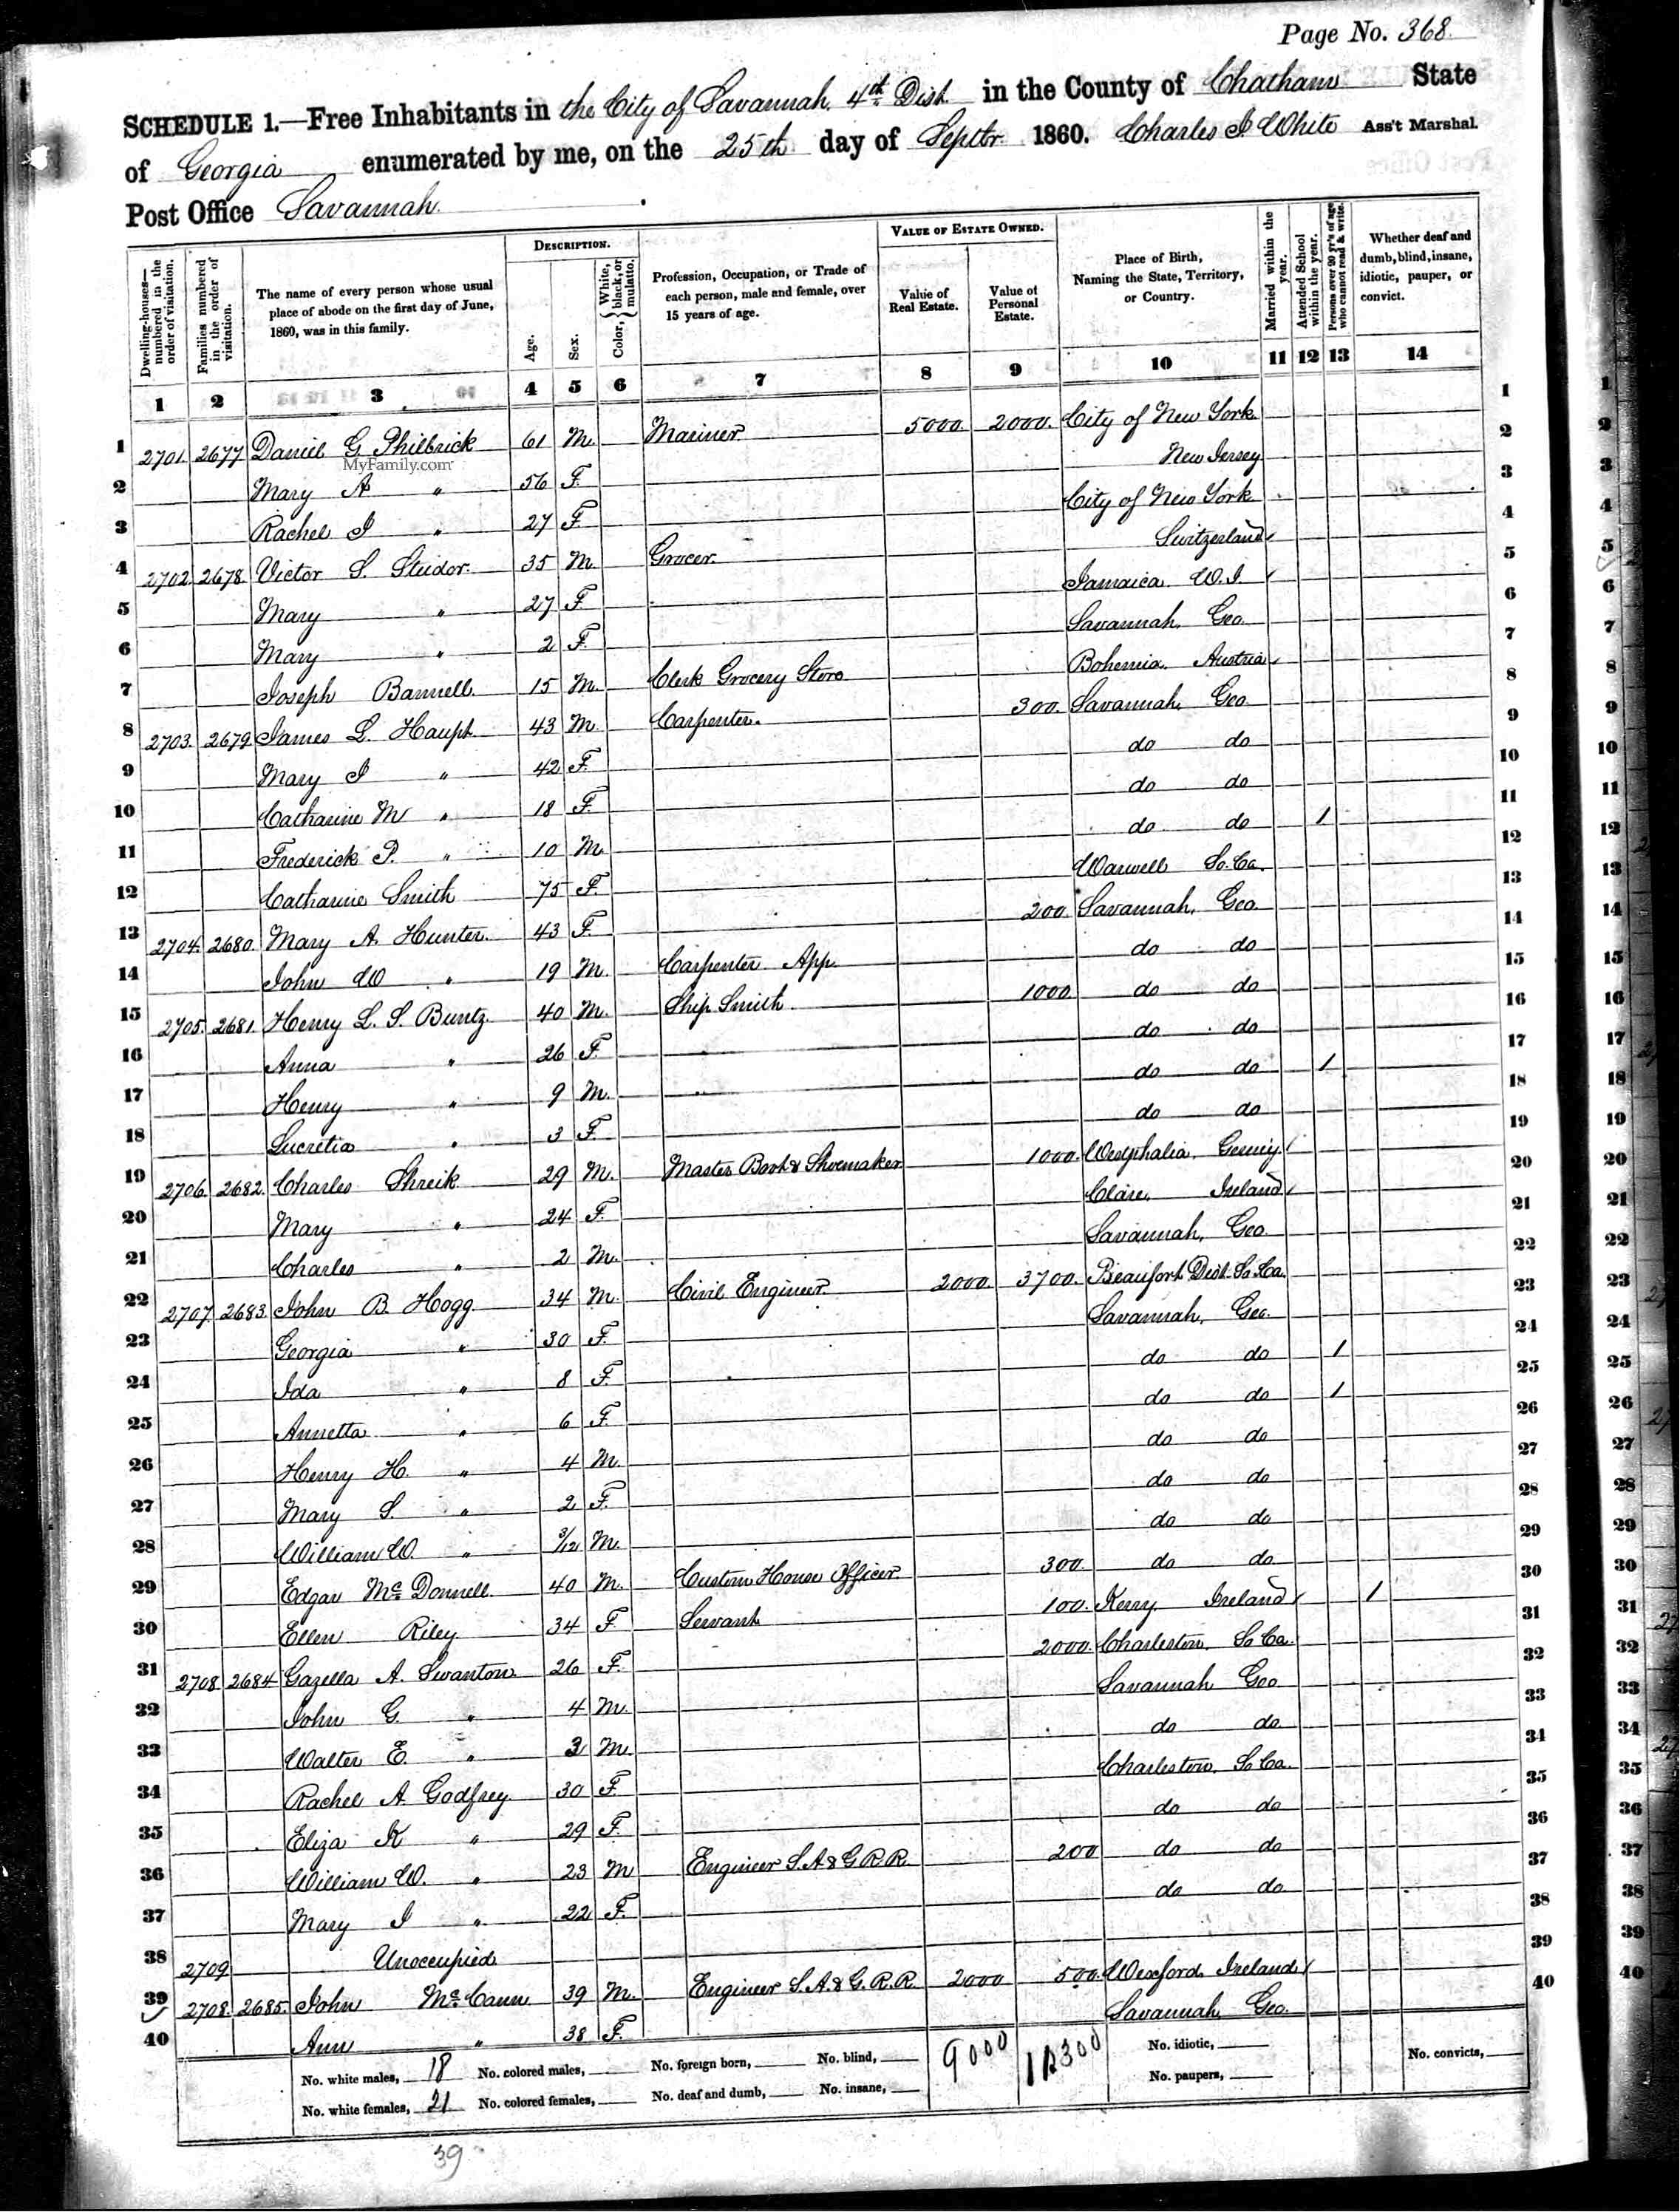 Page No. 368
SCHEDULE 1.—Free Inhabitants in the City of Savannah 4th Dist. in the County of Chatham State
of Georgia enumerated by me, on the 25th day of Septbr 1860. Charles J White Ass't Marshal.
Post Office Savannah.
Dwelling-houses—numbered in the order of visitation.
Families numbered in the order of visitation.
The name of every person whose usual place of abode on the first day of June, 1860, was in this family.
DESCRIPTION.
Age.
Sex.
Color, { White, black, or mulatto.
Profession, Occupation, or Trade of each person, male and female, over 15 years of age.
VALUE OF ESTATE OWNED.
Value of Real Estate.
Value of Personal Estate.
Place of Birth, Naming the State, Territory, or Country.
Married within the year.
Attended School within the year.
Persons over 20 yr's of age who cannot read & write.
Whether deaf and dumb, blind, insane, idiotic, pauper, or convict.
1 2 3 4 5 6 7 8 9 10 11 12 13 14
1 2701. 2677 Daniel G Philbrick 61 M. Mariner 5000. 2000. City of New York 1
MyFamily.com
2 Mary A " 56 F. New Jersey 2
3 Rachel J " 27 F. City of New York 3
4 2702 2678. Victor S. Studor. 35 M. Grocer. Switzerland 4
5 Mary " 27 F Jamaica W.I. 5
6 Mary " 2 F. Savannah, Geo. 6
7 Joseph Bannell. 15 M. Clerk Grocery Store Bohemia. Austria 7
8 2703. 2679 James L. Haupt 43 M. Carpenter. 300. Savannah, Geo. 8
9 Mary J " 42 F. do do 9
10 Catharine M " 18 F. do do 10
11 Frederick P. " 10 M. do do 1 11
12 Catharine Smith 75 F. Warwell So. Ca. 12
13 2704. 2680. Mary A. Hunter. 43 F. 200. Savannah, Geo. 13
14 John W " 19 M. Carpenter App. do do 14
15 2705. 2681. Henry L. S. Buntz. 40 M. Ship Smith. 1000. do do 15
16 Anna " 26 F. do do 16
17 Henry " 9 M. do do 1 17
18 Lucretia " 3 F. do do 18
19 2706. 2682. Charles Shreik 29 M. Master Boot & Shoemaker 1000. Westphalia, Germy. 19
20 Mary " 24 F. Clare, Ireland 20
21 Charles " 2 M. Savannah, Geo. 21
22 2707. 2683. John B Hogg. 34 M. Civil Engineer. 2000. 3700. Beaufort Dist. So. Ca. 22
23 Georgia " 30 F. Savannah, Geo. 23
24 Ida " 8 F. do do 1 24
25 Annetta " 6 F. do do 1 25
26 Henry H. " 4 M. do do 26
27 Mary S. " 2 F. do do 27
28 William W. " 3/12 M. do do 28
29 Edgar McDonnell. 40 M. Custom House Officer. 300. do do 29
30 Ellen Riley 34 F. Servant 100. Kerry Ireland 1 30
31 2708 2684 Gazella A. Swanton 26 F. 2000. Charleston, So Ca. 31
32 John G. " 4 M. Savannah Geo 32
33 Walter E. " 3 M. do do 33
34 Rachel A Godfrey 30 F. Charleston, So Ca. 34
35 Eliza K " 29 F. do do 35
36 William W. " 23 M Engineer S. A & G R.R. 200 do do 36
37 Mary J " 22 F. do do 37
38 2709 Unoccupied 38
39 2708. 2685. John McCann 39 M. Engineer S. A. & G. R. R. 2000 500. Wexford, Ireland 39
40 Ann " 38 F. Savannah, Geo. 40
No. white males, 18 No. colored males, No. foreign born, No. blind, 9000 12300 No. idiotic, No. convicts,
No. white females, 21 No. colored females, No. deaf and dumb, No. insane, No. paupers,
39